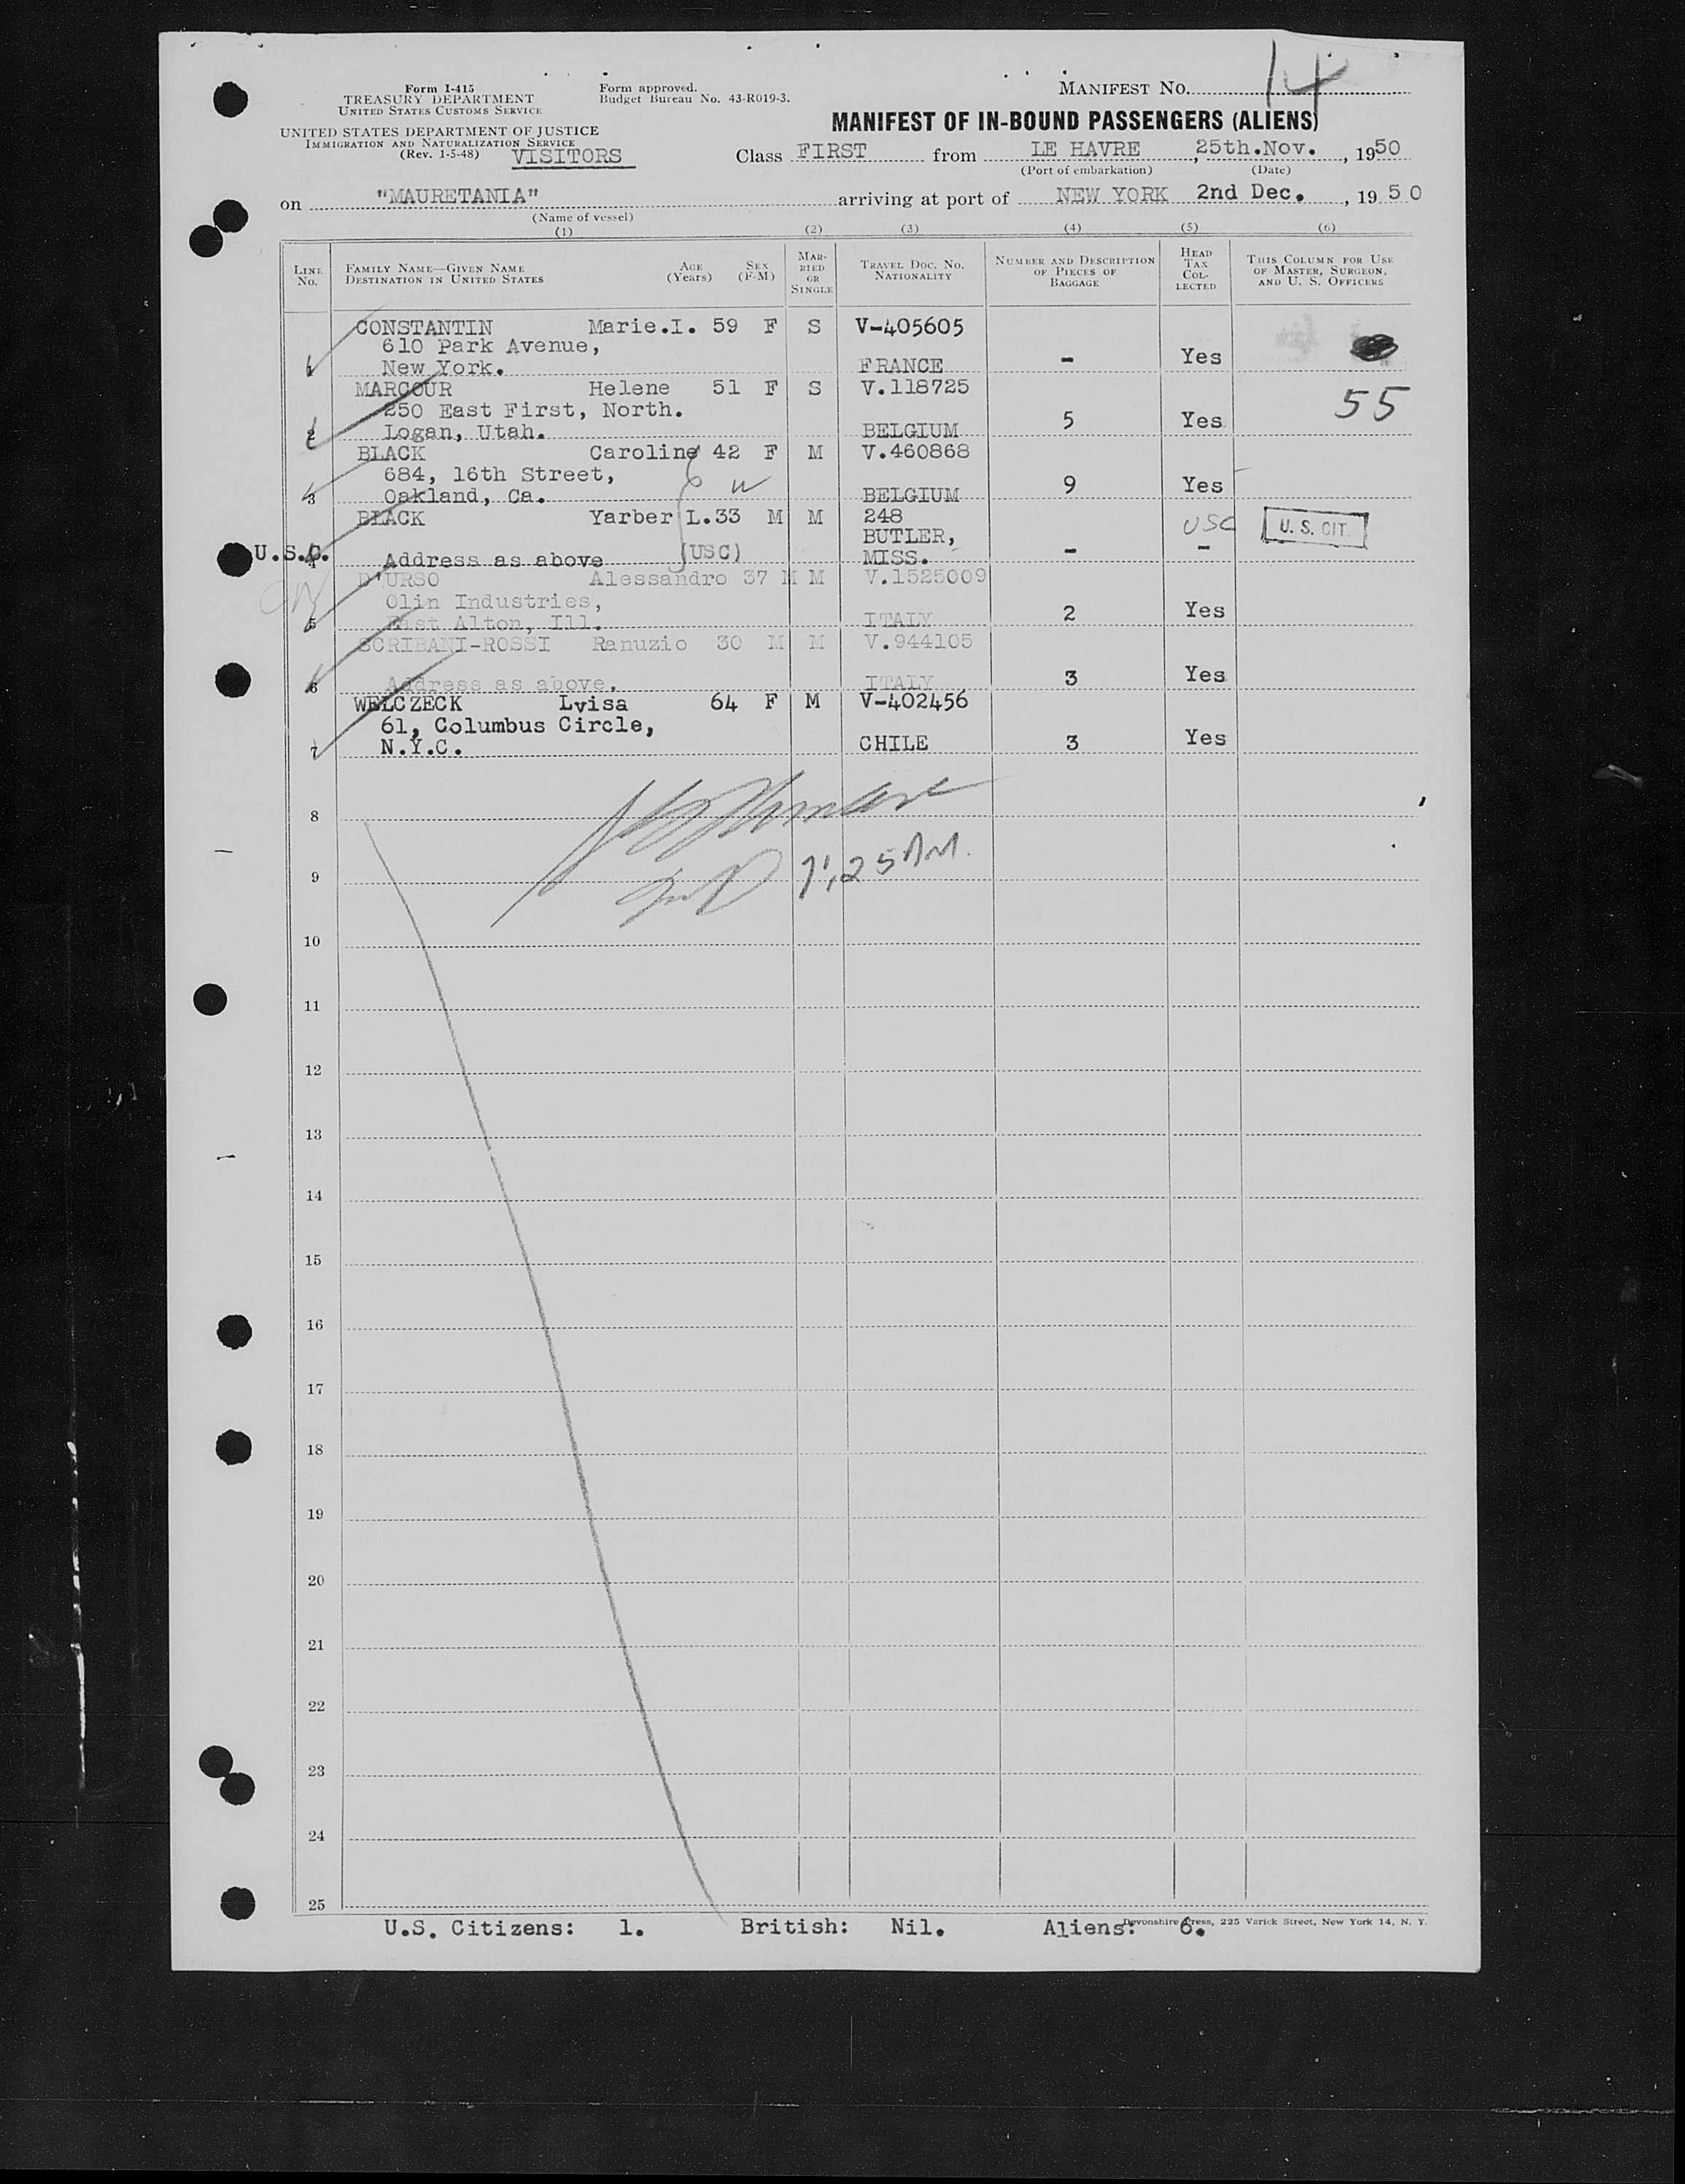 Form I-415
TREASURY DEPARTMENT
UNITED STATES CUSTOMS SERVICE
UNITED STATES DEPARTMENT OF JUSTICE
IMMIGRATION AND NATURALIZATION SERVICE
(Rev. 1-5-48) VISITORS
Form approved.
Budget Bureau No. 43-R019-3.
MANIFEST NO. 14
MANIFEST OF IN-BOUND PASSENGERS (ALIENS)
Class FIRST from LE HAVRE, 25th.Nov., 1950
(Port of embarkation) (Date)
on "MAURETANIA" arriving at port of NEW YORK 2nd Dec., 1950
(Name of vessel)
(1) (2) (3) (4) (5) (6)
LINE NO.
FAMILY NAME—GIVEN NAME
DESTINATION IN UNITED STATES
AGE (Years)
SEX (F-M)
MARRIED OR SINGLE
TRAVEL DOC. NO.
NATIONALITY
NUMBER AND DESCRIPTION OF PIECES OF BAGGAGE
HEAD TAX COLLECTED
THIS COLUMN FOR USE OF MASTER, SURGEON, AND U. S. OFFICERS
CONSTANTIN Marie.I. 59 F S V-405605
610 Park Avenue,
1 New York. FRANCE - Yes
MARCOUR Helene 51 F S V.118725
250 East First, North. 5 Yes 55
2 Logan, Utah. BELGIUM
BLACK Caroline 42 F M V.460868
684, 16th Street,
3 Oakland, Ca. BELGIUM 9 Yes
BLACK Yarber L. 33 M M 248 USC U. S. CIT.
BUTLER,
U.S.C. 4 Address as above (USC) MISS. - -
D'URSO Alessandro 37 M M V.1525009
Olin Industries,
5 East Alton, Ill. ITALY 2 Yes
SCRIBANI-ROSSI Ranuzio 30 M M V.944105
6 Address as above. ITALY 3 Yes
WELCZECK Lvisa 64 F M V-402456
61, Columbus Circle,
7 N.Y.C. CHILE 3 Yes
8
9 7:25 AM.
10
11
12
13
14
15
16
17
18
19
20
21
22
23
24
25
U.S. Citizens: 1. British: Nil. Aliens: 6.
Devonshire Press, 225 Varick Street, New York 14, N. Y.